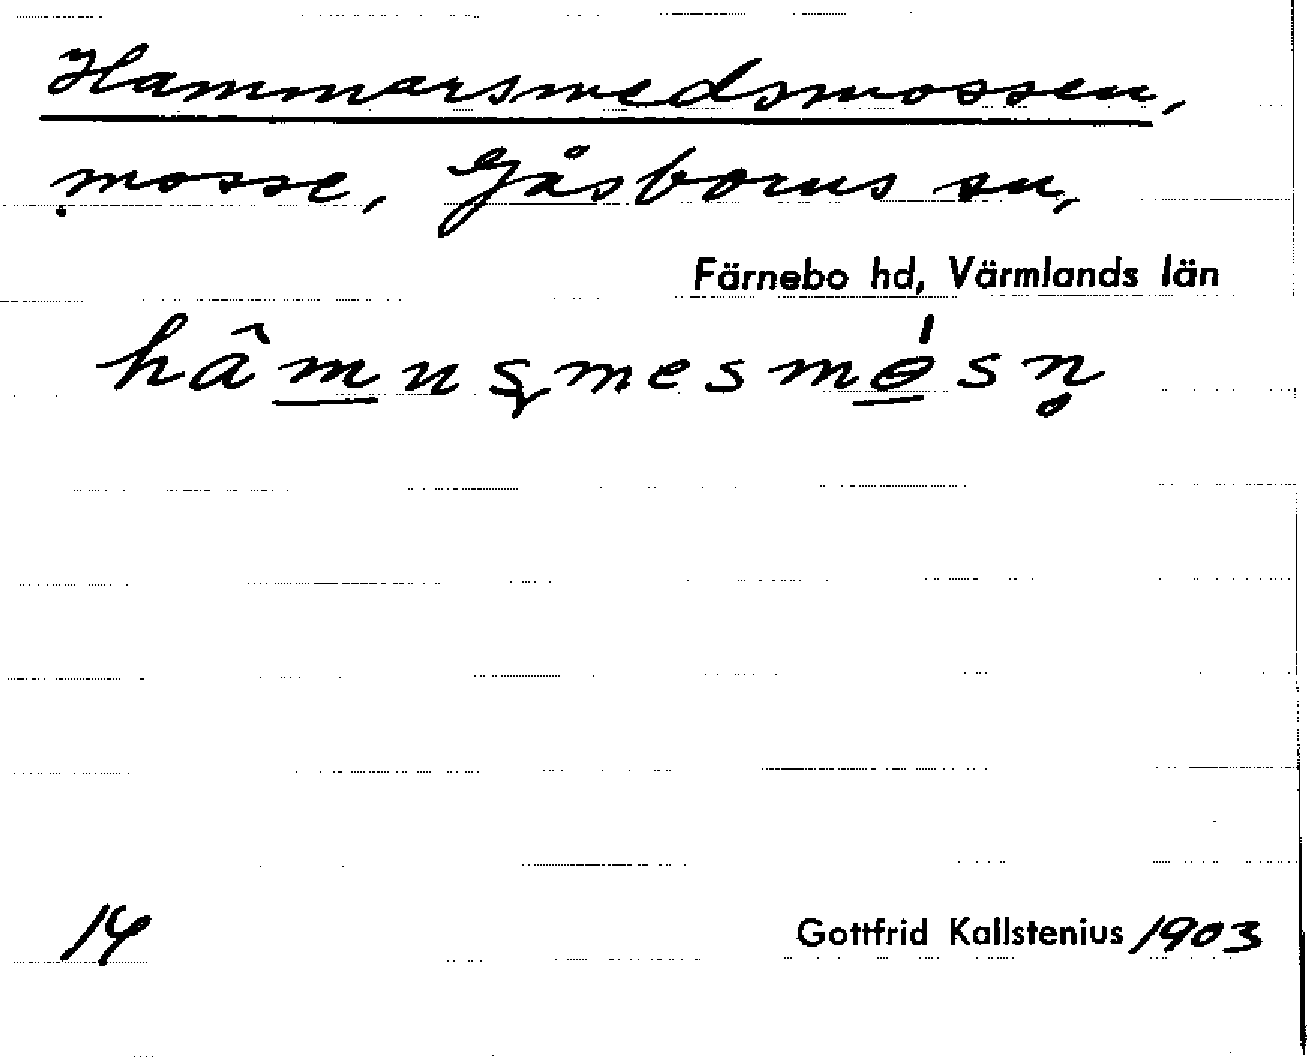 Hammarsmedsmossen,
mosse, Gåsborns sn,
Färnebo hd, Värmlands län
hâmnʂmesmɵ́sn̥
14 Gottfrid Kallstenius 1903